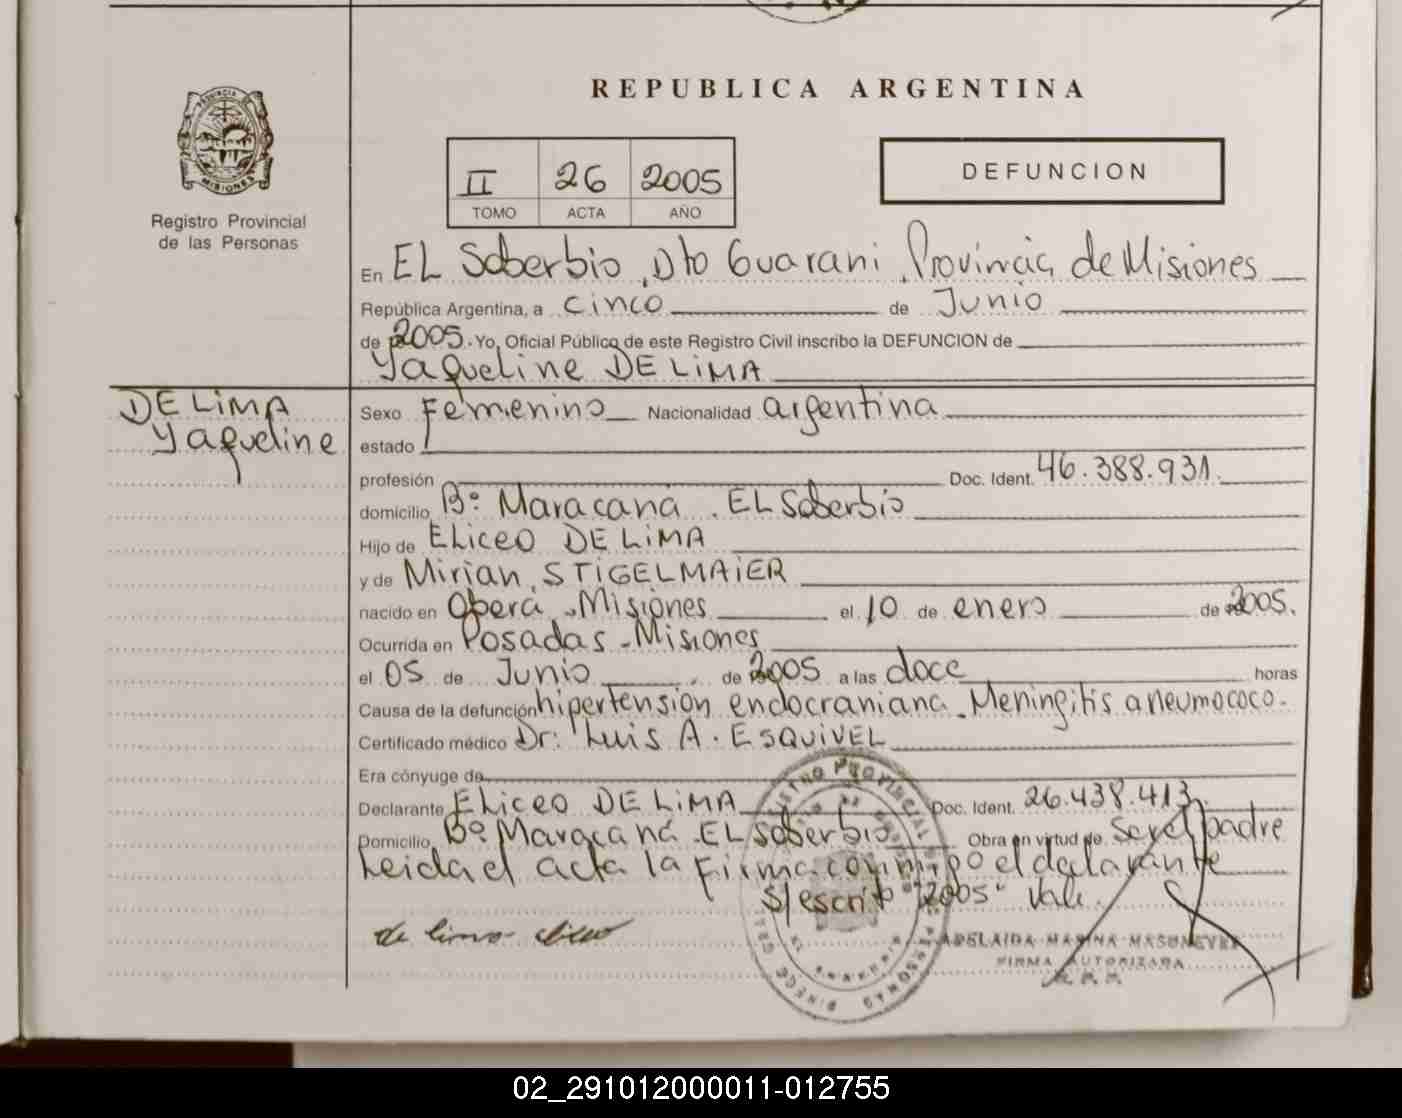 REPUBLICA ARGENTINA
PROVINCIA DE
MISIONES
Registro Provincial
de las Personas
II 26 2005
TOMO ACTA AÑO
DEFUNCION
En EL Soberbio, Dto Guarani, Provincia de Misiones
República Argentina, a cinco de Junio
de 2005. Yo, Oficial Público de este Registro Civil inscribo la DEFUNCION de
Yaqueline DE LiMA
DE LiMA
Yaqueline
Sexo Femenino Nacionalidad argentina
estado
profesión Doc. Ident. 46.388.931.
domicilio Bº Maracaná. EL Soberbio
Hijo de ELiceo DE LiMA
y de Mirian STIGELMAiER
nacido en Oberá, Misiones el 10 de enero de 2005.
Ocurrida en Posadas - Misiones
el 05 de Junio de 2005 a las doce horas
Causa de la defunción hipertensión endocraniana. Meningitis a neumococo.
Certificado médico Dr. Luis A. ESQUIVEL
Era cónyuge de
Declarante ELiceo DE LiMA Doc. Ident. 26.438.413.
Domicilio Bº Maracaná EL Soberbio Obra en virtud de Ser el padre
Leida el acta la Firma conmigo el declarante
S/escrito "2005" Vale.
de lima eliceo
FIRMA AUTORIZADA
02_291012000011-012755